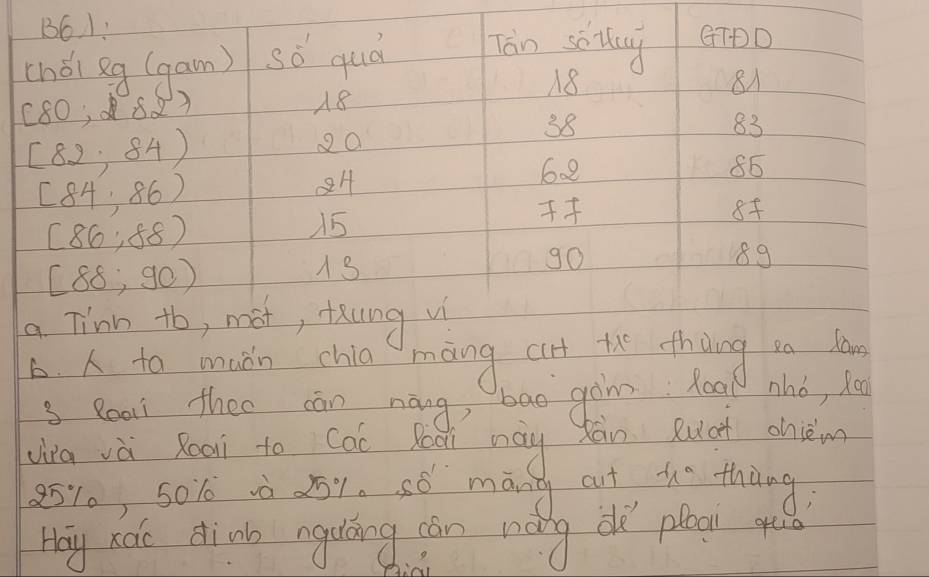 B6.1:
Khối lg (gam) Số quả Tần số tluỹ GTĐD
[80; 82) 18 18 81
[82; 84) 20 38 83
[84; 86) 24 62 85
[86; 88) 15 77 87
[88; 90) 13 90 89
a. Tính tb, mốt, trung vị
b. ta muốn chia măng cụt thùng ra làm
3 loại theo cân nặng, bao gồm: loại nhỏ, loại
vừa và loại to Các loại này lần lượt chiếm
25%, 50% và 25% số măng cụt thùng;
Hãy xác định ngưỡng cân nặng để ploại quả
Giải